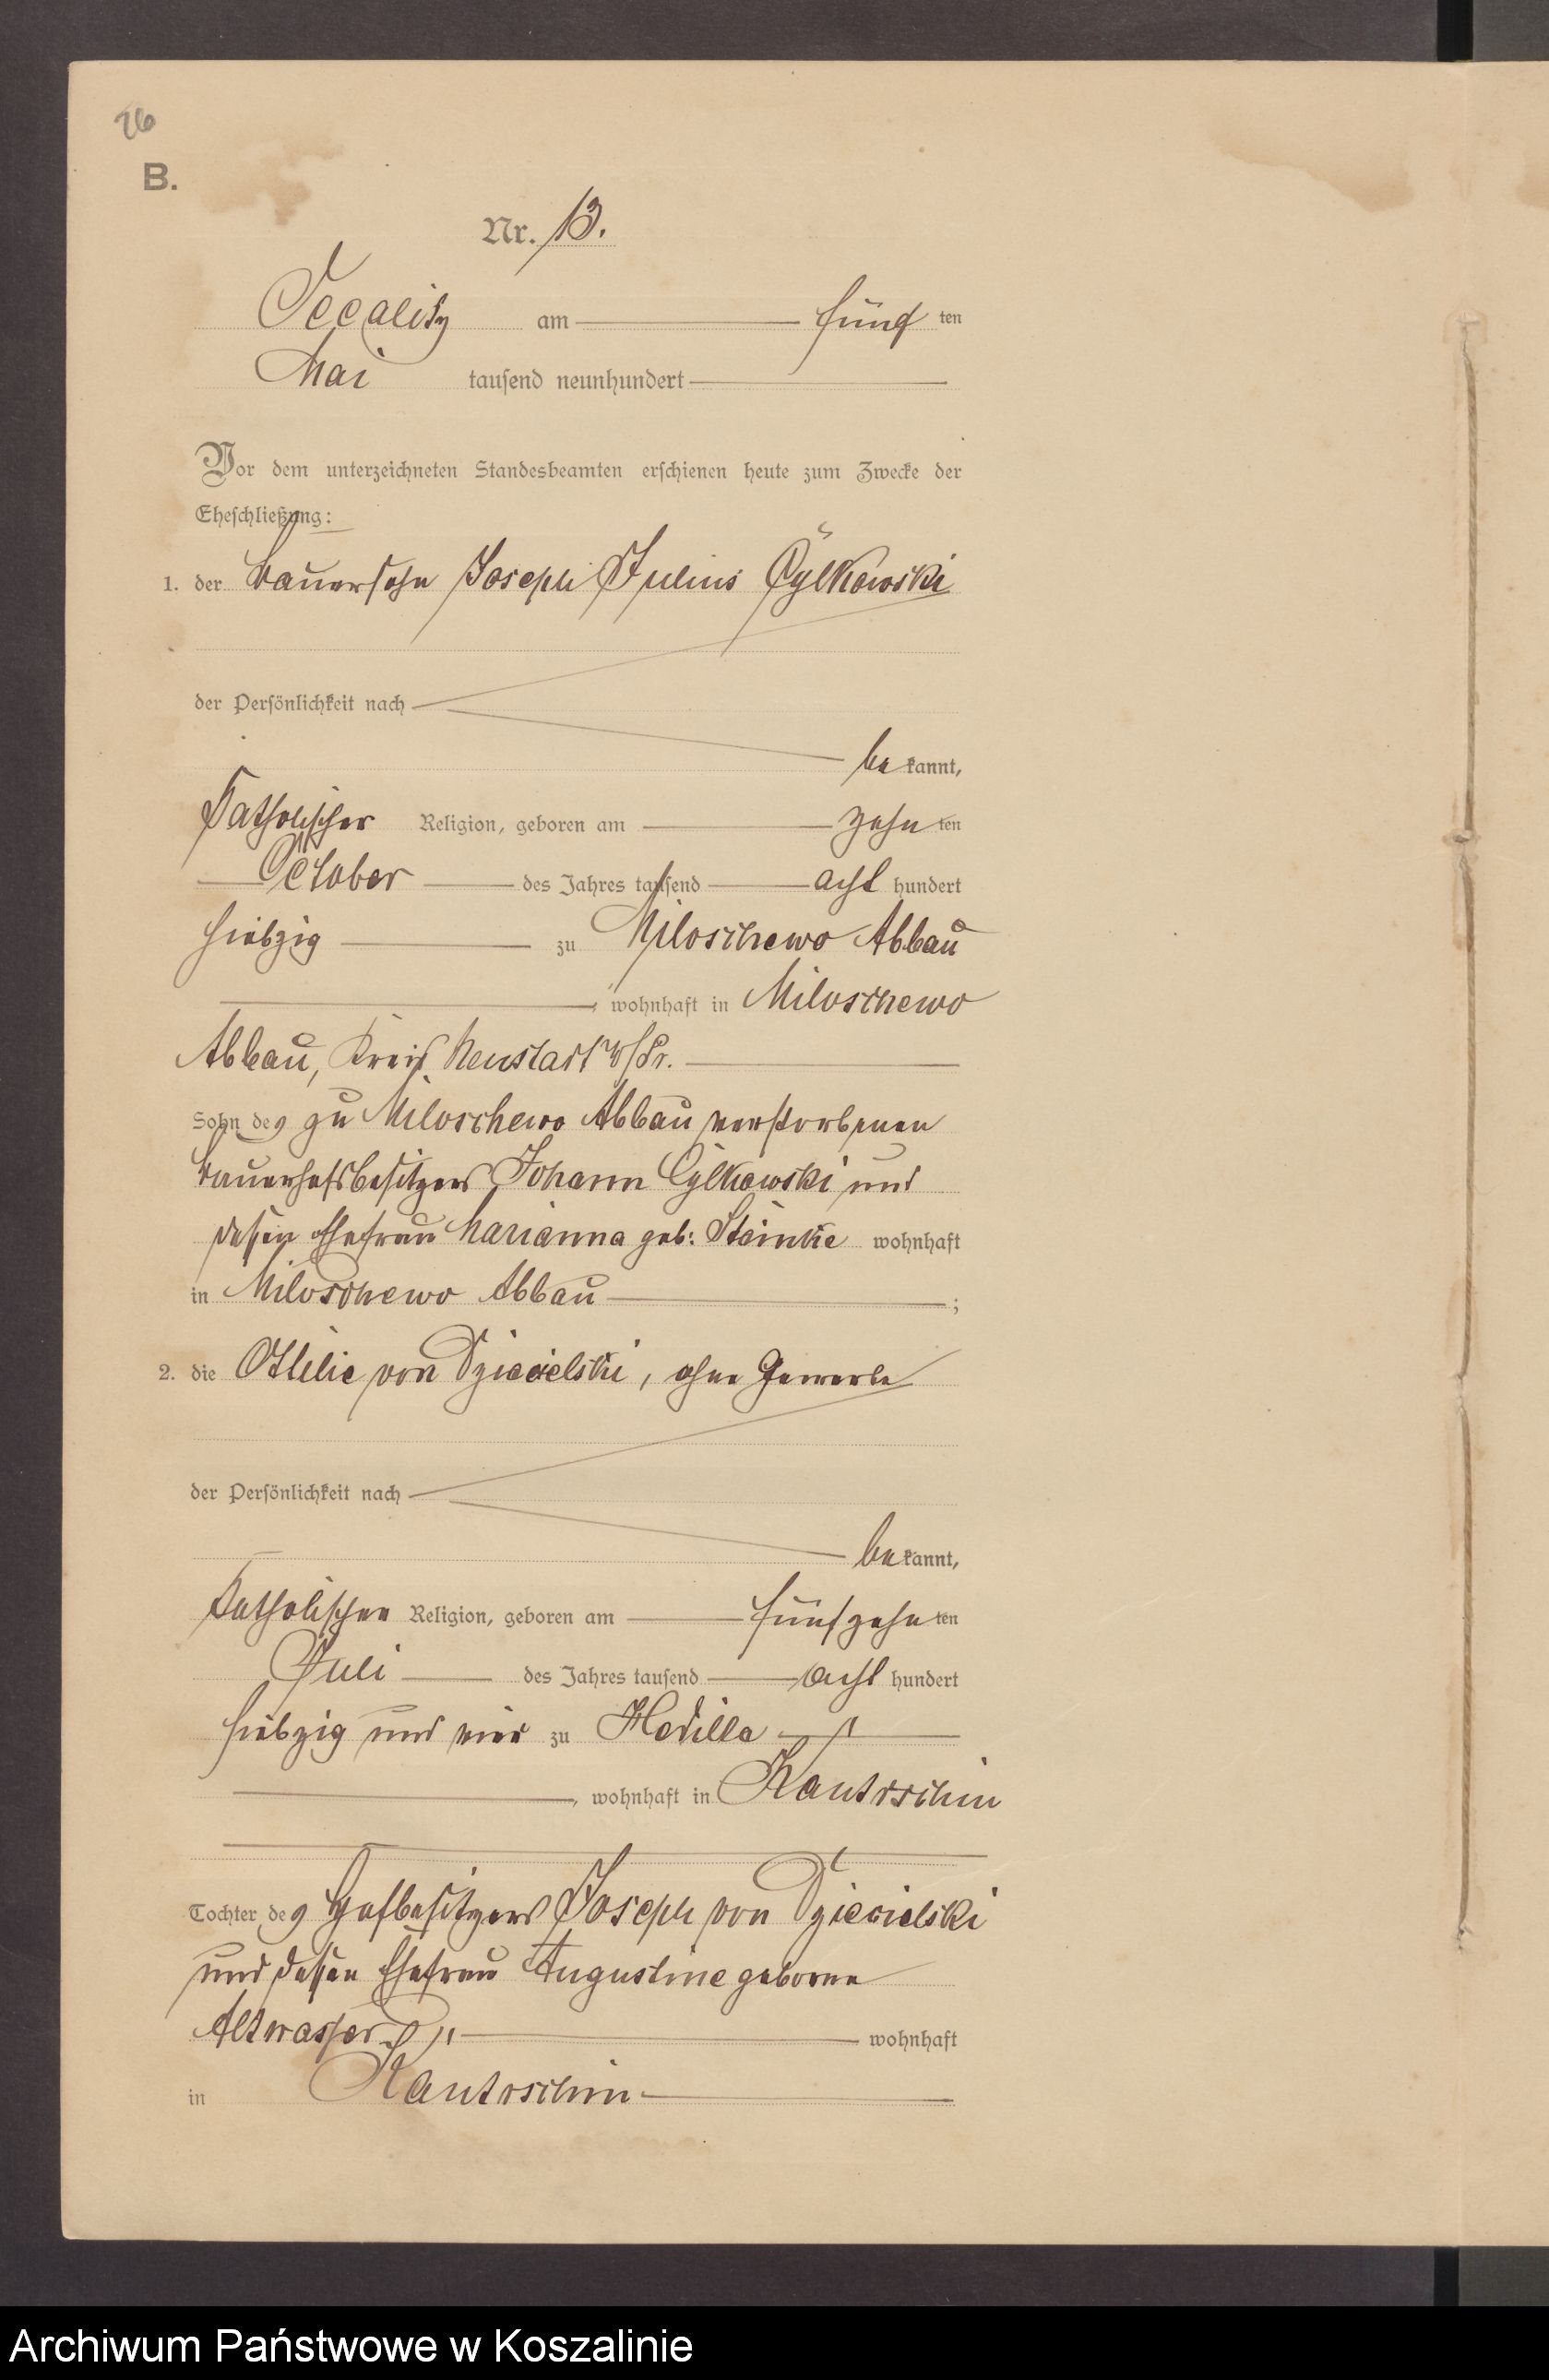 26
B.
Nr. 13.
am fünf ten
Mai tausend neunhundert
Vor dem unterzeichneten Standesbeamten erschienen heute zum Zwecke der
Eheschließung:
1. der Bauersohn Joseph Julius Cylkowski
der Persönlichkeit nach
be kannt,
Katholischer Religion, geboren am zehn ten
October des Jahres tausend acht hundert
siebzig zu Miloschewo Abbau
, wohnhaft in Miloschewo
Abbau, Kreis Neustadt W/Pr.
Sohn des zu Miloschewo Abbau verstorbenen
Bauerhofsbesitzers Johann Cylkowski und
dessen Ehefrau Marianna geb: Steinke wohnhaft
in Miloschewo Abbau ;
2. die Ottilie von Dziecielski, ohne Gewerbe
der Persönlichkeit nach
be kannt,
Katholischen Religion, geboren am fünfzehn ten
Juli des Jahres tausend acht hundert
siebzig und vier zu
, wohnhaft in Kantrschin
Tochter des Hofbesitzers Joseph von Dziecielski
und dessen Ehefrau Augustine geborne
Altwasser wohnhaft
in Kantrschin
Archiwum Państwowe w Koszalinie